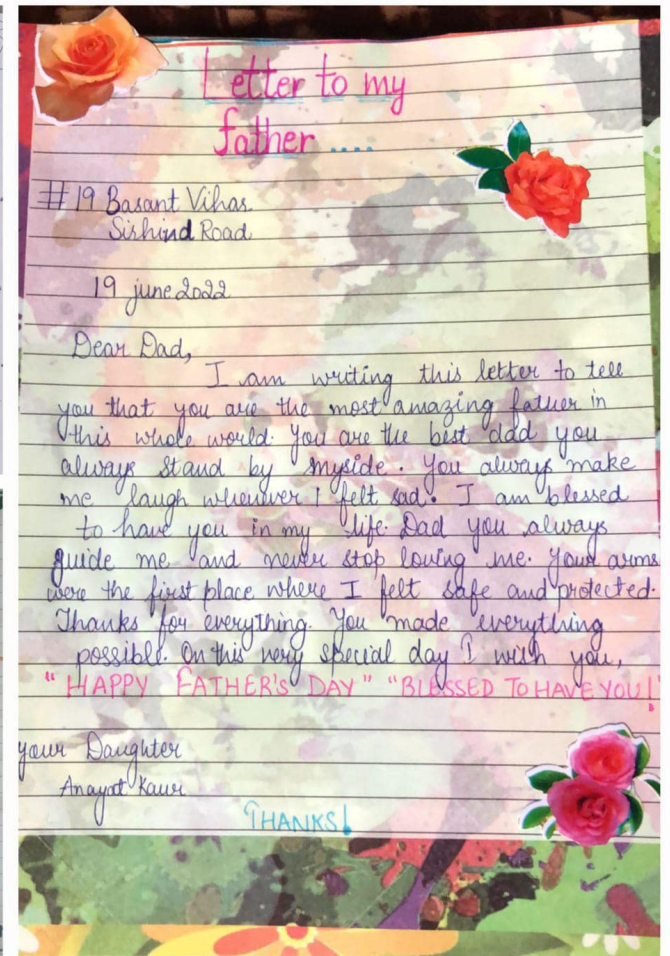 Letter to my
father ....
#19 Basant Vihar
Sirhind Road
19 june 2022
Dear Dad,
I am writing this letter to tell
you that you are the most amazing father in
this whole world. You are the best dad you
always stand by myside. You always make
me laugh whenever I felt sad. I am blessed
to have you in my life. Dad you always
guide me and never stop loving me. Your arms
were the first place where I felt safe and protected.
Thanks for everything. You made everything
possible. On this very special day I wish you,
"HAPPY FATHER'S DAY" "BLESSED TO HAVE YOU!"
your Daughter
Anayat Kaur
THANKS!